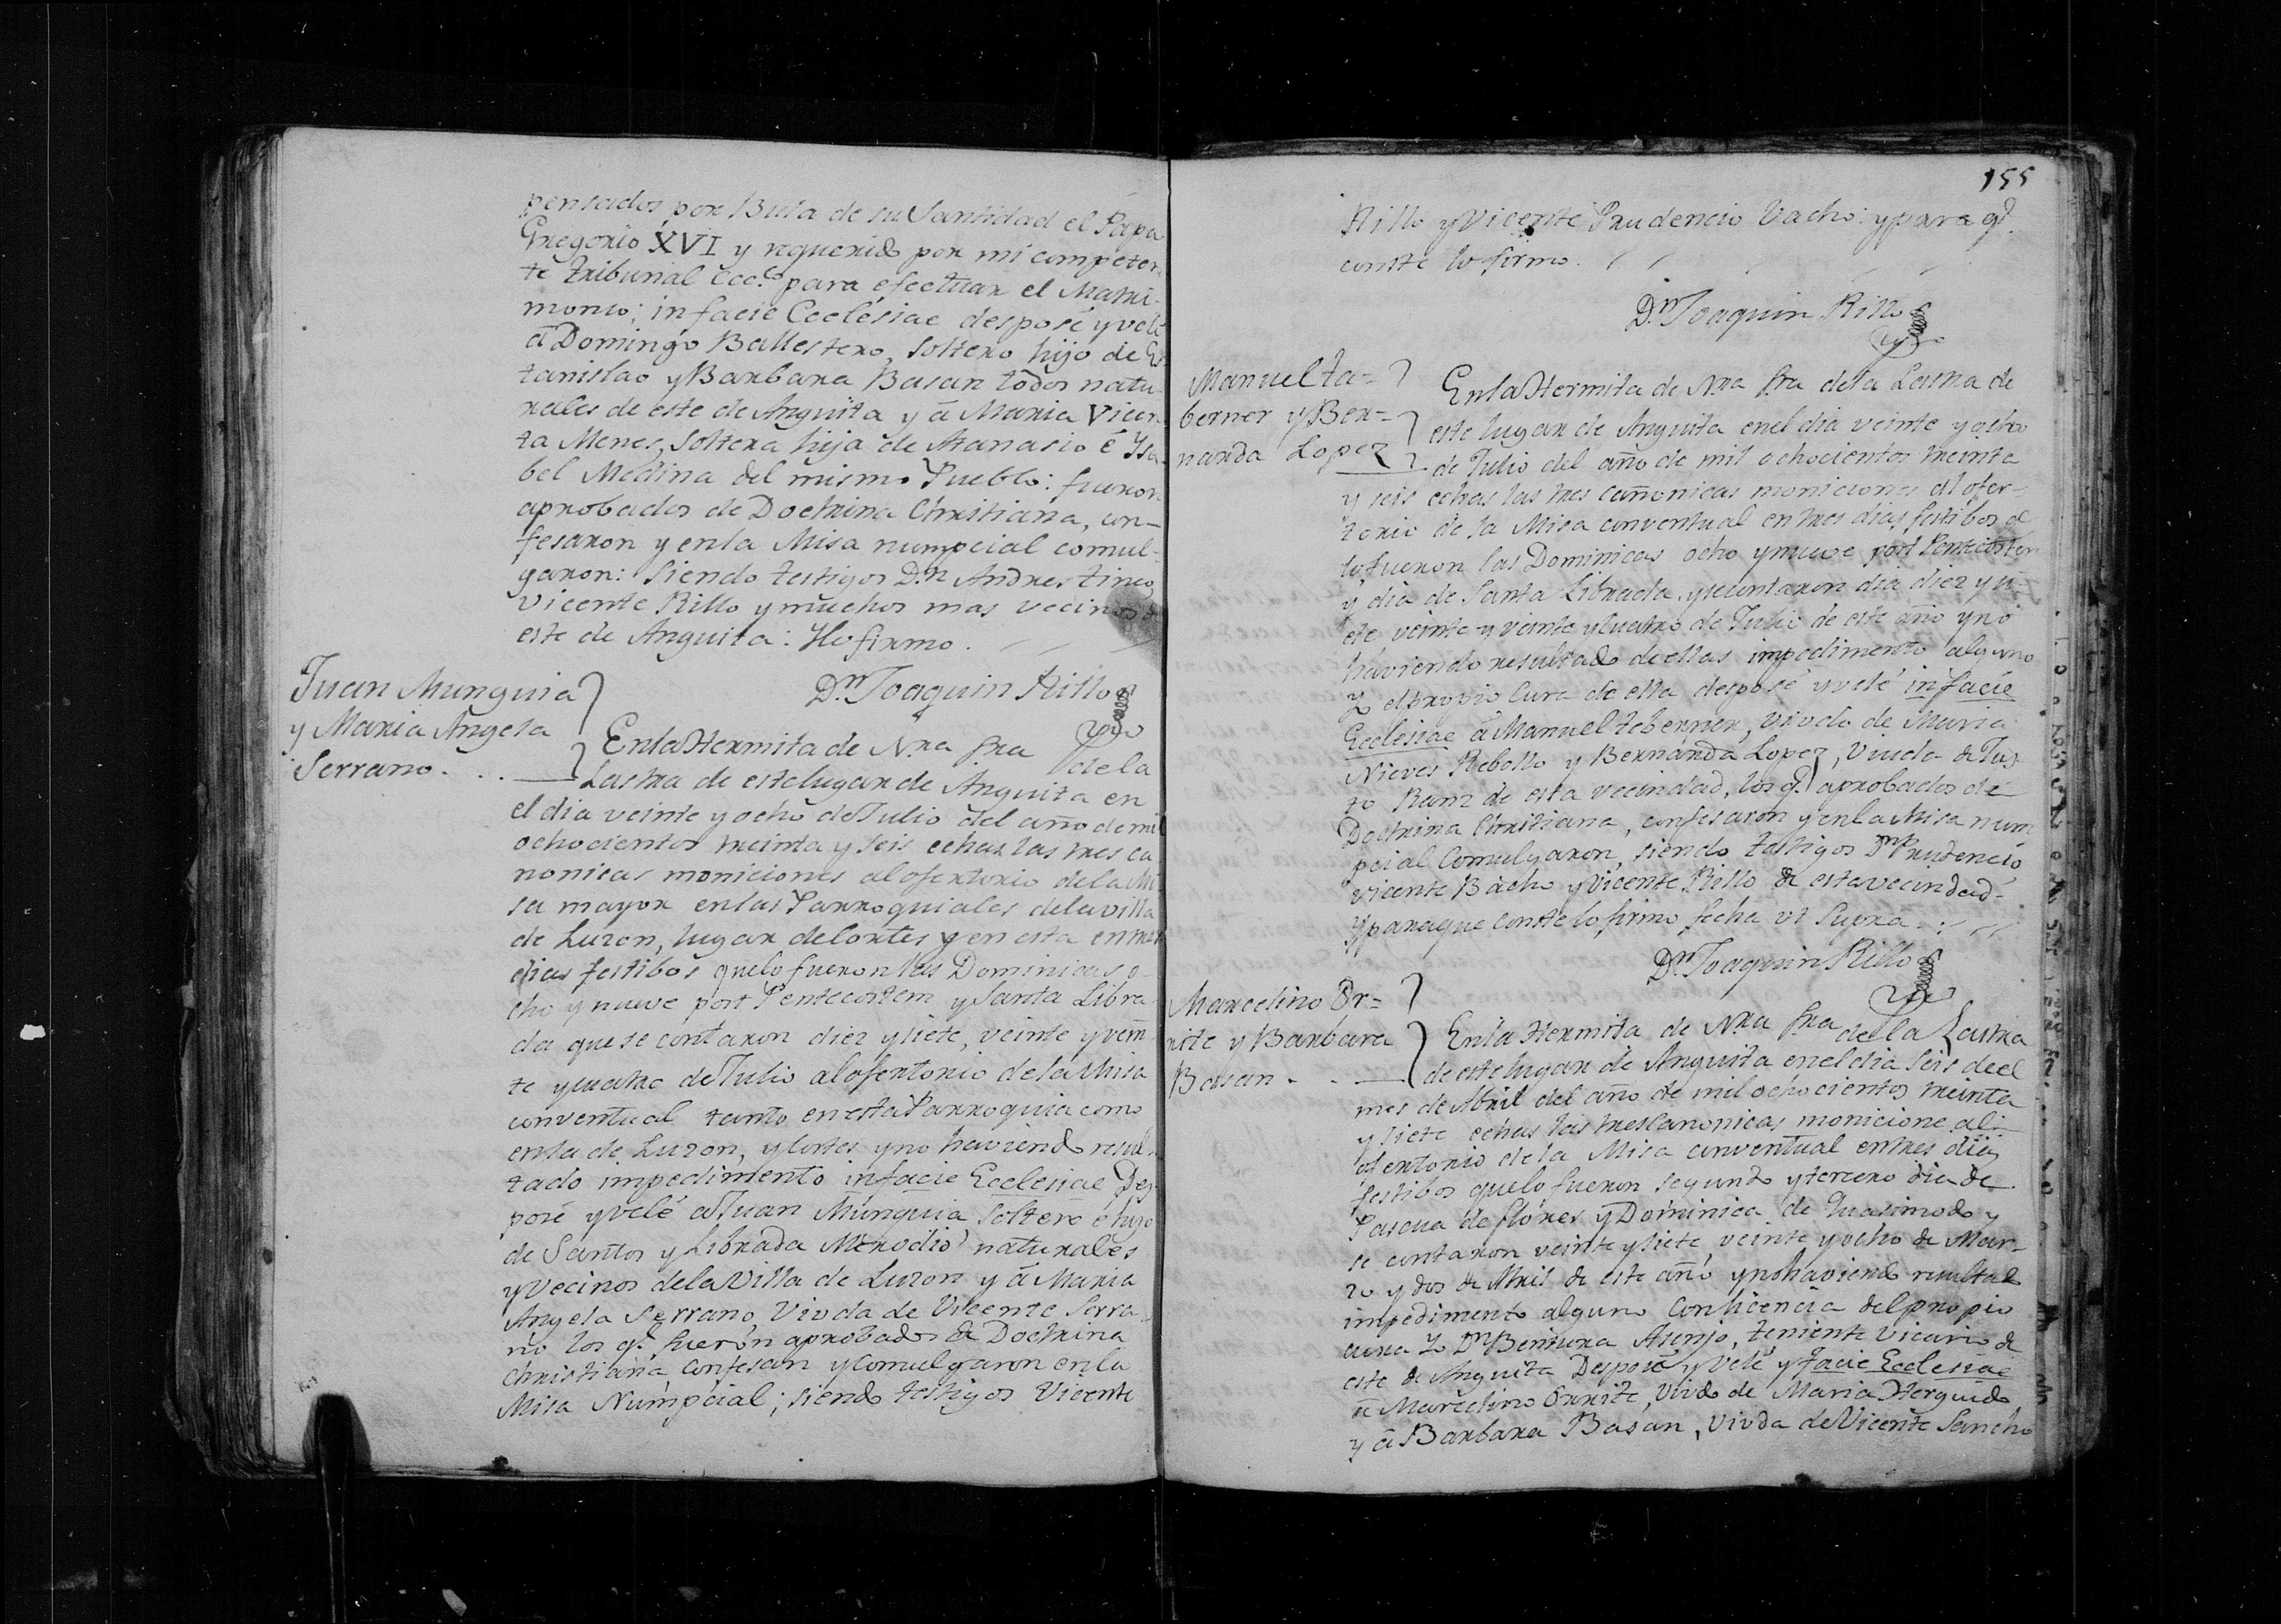 pensados por Bula de su Santidad el Papa
Gregorio XVI y requerido por mi competen
te tribunal Ecc.co para efectuar el Matri-
monio; in facie Ecclésiae desposé y velé
á Domingo Ballestero, soltero hijo de Es
tanislao y Barbara Basan todos natu-
rales de este de Anguita y á Maria Vicen
ta Menes, soltera hija de Atanasio é Ysa-
bel Medina del mismo Pueblo: fueron
aprobados de Doctrina Christiana, con-
fesaron y enla Misa numpcial comul-
garon: siendo testigos D.n Andres tineo,
Vicente Rillo y muchos mas vecinos d
este de Anguita: Ylo firmo.
D.n Joaquin Rillo
Juan Munguia
y Maria Angela
Serrano
Enla Hermita de N.ra Sra dela
Lastra de este lugar de Anguita en
el dia veinte y ocho de Julio del año de mil
ochocientos treinta y seis echas las tres ca
nonicas moniciones al ofertorio dela Mi
sa mayor enlas Parroquiales dela villa
de Luzon, lugar de Cortes y en esta en tres
dias festibos quelo fueron las Dominicas o-
cho y nueve post Pentecostem y Santa Libra
da que se contaron diez y siete, veinte y vein
te y cuatro de Julio al ofertorio de la Misa
conventual tanto en esta Parroquia como
enla de Luzon, y Cortes y no haviendo resul-
tado impedimento infacie Ecclesiae Des-
posé y velé a Juan Munguia soltero é hijo
de Santos y Librada naturales
y Vecinos dela Villa de Luzon y á Maria
Angela Serrano, Viuda de Vicente Serra
no los q.e fueron aprobados de Doctrina
Christiana, confesan y comulgaron enla
Misa Numpcial; siendo testigos Vicente
155
Rillo y Vicente Prudencio Vacho: y para q.e
conste lo firmo.
D.n Joaquin Rillo
Manuel Ta=
berner y Ber=
narda Lopez
Enla Hermita de N.ra Sra dela Lastra de
este lugar de Anguita enel dia veinte y ocho
de Julio del año de mil ochocientos treinta
y seis echas las tres cañonicas moniciones al ofer-
torio de la Misa conventual en tres dias festibos q.e
lo fueron las Dominicas ocho y nueve post Pentecosten
y dia de Santa Librada, y se contaron dia diez y si-
ete veinte y veinte y cuatro de Julio de este año y no
haviendo resultado de ellas impedimento alguno
Yo el propio Cura de ella desposé y velé in facie
Ecclesiae á Manuel teberner, viudo de Maria
Nieves Rebollo y Bernarda Lopez, Viuda de Jus
to Ranz de esta vecindad, los q.e aprobados de
Doctrina Christiana, confesaron y enla Misa num
pcial Comulgaron, siendo testigos D.n Prudencio
Vicente Bacho y Vicente Rillo de esta vecindad.
Y para que conste lo firmo fecha ut supra.
D.n Joaquin Rillo
Marcelino Or=
rite y Barbara
Basan
Enla Hermita de N.ra Sra de la Lastra
de este lugar de Anguita enel dia seis deel
mes de Abril del año de mil ochocientos treinta
y siete echas las tres Canonicas monicione al
ofertorio dela Misa conventual en tres dias
festibos quelo fueron segundo y tercero dia de
Pascua de flores y Dominica de Quasimodo y
se contaron veinte y siete, veinte y ocho de Mar-
zo y dos de Abril de este año y no haviendo resultado
impedimento alguno con licencia del propio
cura Yo D.n Bentura Asenjo, teniente Vicario de
este de Anguita Desposé y velé y facie Ecclesiae
á Marcelino Orrite, Viudo de Maria Herguido
y á Barbara Basan, Viuda de Vicente Sancho